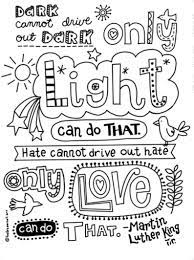 DARK
cannot drive
out DARK
only
Light
can do THAT.
Hate cannot drive out hate
only Love
can do
THAT. -Martin
Luther King
Jr.